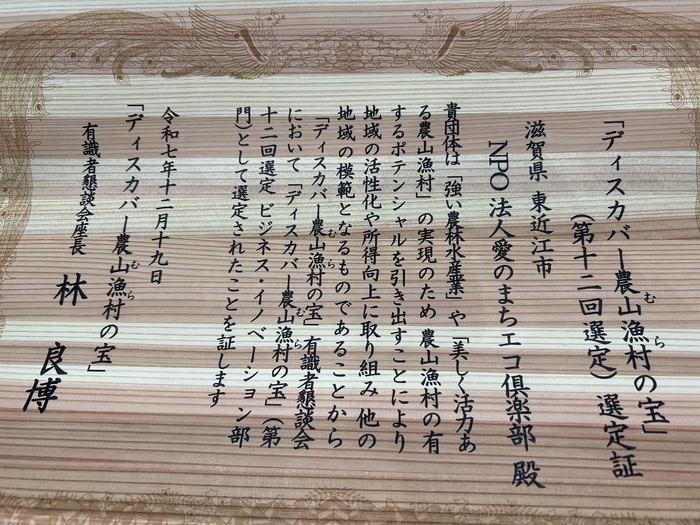 「ディスカバー農山漁村の宝」
むら
(第十二回選定) 選定証
滋賀県 東近江市
NPO法人愛のまちエコ倶楽部 殿
貴団体は「強い農林水産業」や「美しく活力あ
る農山漁村」の実現のため 農山漁村の有
するポテンシャルを引き出すことにより
地域の活性化や所得向上に取り組み 他の
地域の模範となるものであることから
「ディスカバー農山漁村の宝」有識者懇談会
むら
において「ディスカバー農山漁村の宝」(第
むら
十二回選定 ビジネス・イノベーション部
門)として選定されたことを証します
令和七年十二月十九日
「ディスカバー農山漁村の宝」
むら
有識者懇談会座長 林 良博